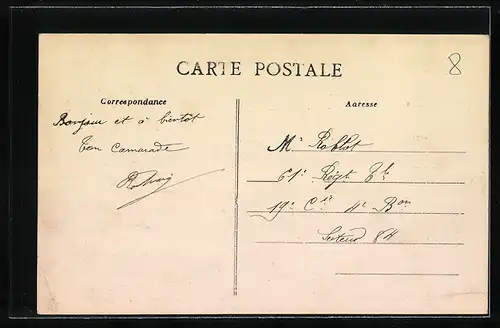 CARTE POSTALE
8
Correspondance
Bonjour et à bientôt
Ton camarade
Adresse
Mr Roblot
61e Régt Tal
19e Cie 4e Bon
Secteur 84